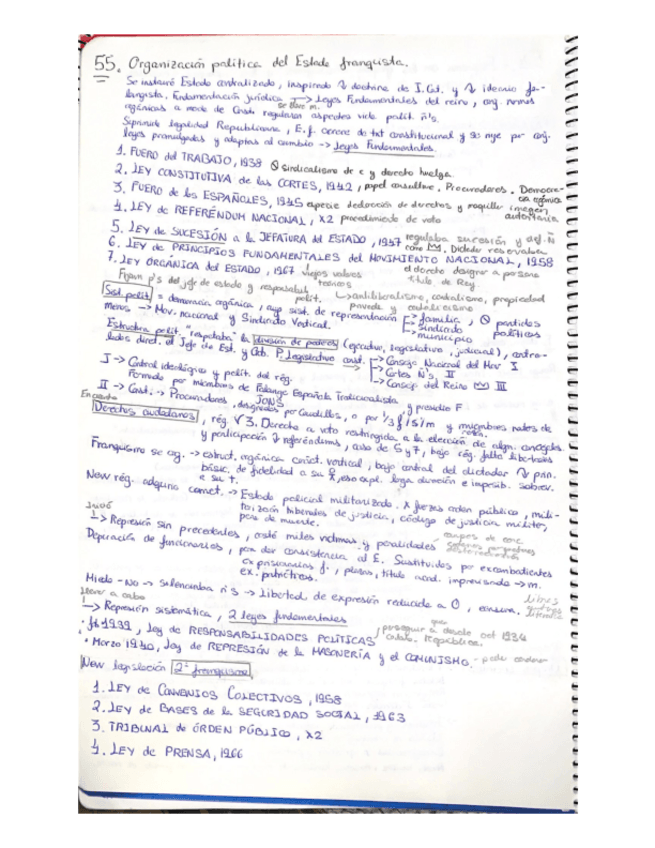 55. Organización política del Estado franquista.
Se instauró Estado centralizado, inspirado doctrina de I. Cat. y ideario fa-
langista. Fundamentación jurídica → Leyes Fundamentales del reino, org. normas
se llave m.
orgánicas a modo de Const. regulaban aspectos vida polít. ñ's.
Suprimida legalidad Republicana, E.f. carece de txt constitucional y se rige por
leyes promulgadas y adaptas al cambio → Leyes Fundamentales.
1. FUERO del TRABAJO, 1938 sindicalismo de c y derecho huelga.
2. LEY CONSTITUTIVA de las CORTES, 1942, papel consultivo. Procuradores. Democra-
cia orgánica
3. FUERO de los ESPAÑOLES, 1945 especie declaración de derechos y maquilla imagen
autoritaria
4. LEY de REFERÉNDUM NACIONAL, x2 procedimiento de voto
5. LEY de SUCESIÓN a la JEFATURA del ESTADO, 1957 regulaba sucesión y def. Ñ
como Dictador reservaba
6. LEY de PRINCIPIOS FUNDAMENTALES del MOVIMIENTO NACIONAL, 1958
el derecho designar a persona
título de Rey.
7. LEY ORGÁNICA del ESTADO, 1967 viejos valores
Fijaba p's del jefe de estado y responsab. polít.
→ antiliberalismo, catolicismo, propiedad
privada y
Sist. polít = democracia orgánica, cuyo sist. de representación → familia, partidos
→ sindicato políticos
→ municipio
Menos → Mov. nacional y Sindicato Vertical.
Estructura polít. "respetaba" la división de poderes (ejecutivo, legislativo, judicial), contro-
lados direct. el Jefe de Est. y Gob. P. Legislativo const. → Consejo Nacional del Mov I
→ Cortes Ñ's II
→ Consejo del Reino III
I → Control ideológico y polít. del rég.
Formado por miembros de Falange Española Tradicionalista y presidía F.
JONS
II → Const. → Procuradores, designados por Caudillo, o por 1/3 f/s/m y miembros natos de
En cuanto
Derechos ciudadanos, rég √ 3. Derecho a voto restringida a la elección de algn. concejales
y participación referéndums, caso de 5 y 7, bajo rég. falto libertades
Franquismo se org. → estruct. orgánica caráct. vertical, bajo control del dictador prin.
básic. de fidelidad a su, eso expl. larga duración e imposib. sobrev.
a su †.
New rég. adquiría caract. → Estado policial militarizado. X fuerzas orden público, mili-
tarización tribunales de justicia, código de justicia militar,
pena de muerte.
Inició
→ Represión sin precedentes, costó miles víctimas y penalidades campos de conc.
Depuración de funcionarios, pan dar consistencia al E. Sustituidos por excombatientes
ex prisioneros f., título acad. → m.
ex. patrióticos.
Miedo - No → silenciaba ñ's → Libertad de expresión reducida a 0, censura. Libros
Llevar a cabo
→ Represión sistemática, 2 leyes fundamentales
· fb 1939, ley de RESPONSABILIDADES POLÍTICAS, que perseguir a desde oct 1934
República.
· Marzo 1940, ley de REPRESIÓN de la MASONERÍA y el COMUNISMO. - pode condenar
New legislación 2º franquismo
1. LEY de CONVENIOS COLECTIVOS, 1958
2. LEY de BASES de la SEGURIDAD SOCIAL, 1963
3. TRIBUNAL de ÓRDEN PÚBLICO, x2
4. LEY de PRENSA, 1966